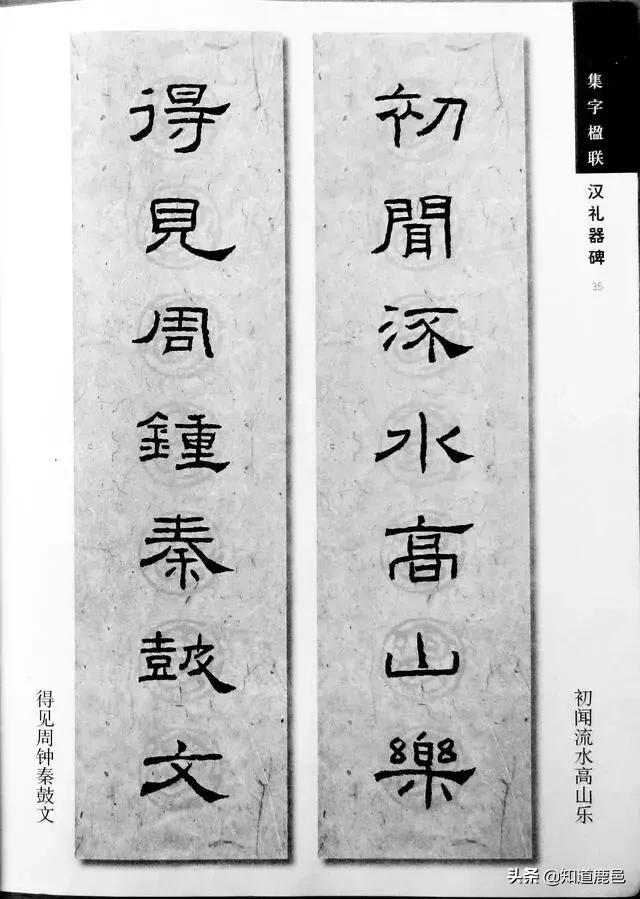 集字楹联
汉礼器碑
35
初闻流水高山乐
初聞流水高山樂
得見周鍾秦皷文
得见周钟秦鼓文
头条 @知道鹿邑